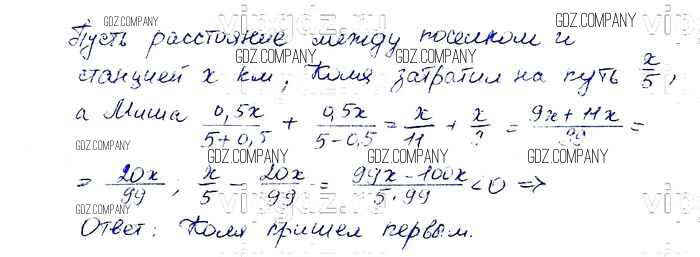 Пусть расстояние между поселком и
станцией x км, Коля затратил на путь x/5,
а Миша 0,5x/(5+0,5) + 0,5x/(5-0,5) = x/11 + x/9 = (9x+11x)/99 =
= 20x/99; x/5 - 20x/99 = (99x-100x)/(5·99) < 0 =>
Ответ: Коля пришел первым.
GDZ.COMPANY
GDZ.COMPANY
GDZ.COMPANY
GDZ.COMPANY
GDZ.COMPANY
GDZ.COMPANY
GDZ.COMPANY
GDZ.COMPANY
GDZ.COMPANY
GDZ.COMPANY
GDZ.COMPANY
GDZ.COMPANY